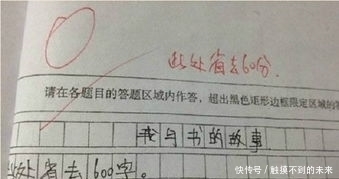 此处省去60分.
请在各题目的答题区域内作答，超出黑色矩形边框限定区域的
我与书的故事
此处省去600字。
快传号/触摸不到的未来